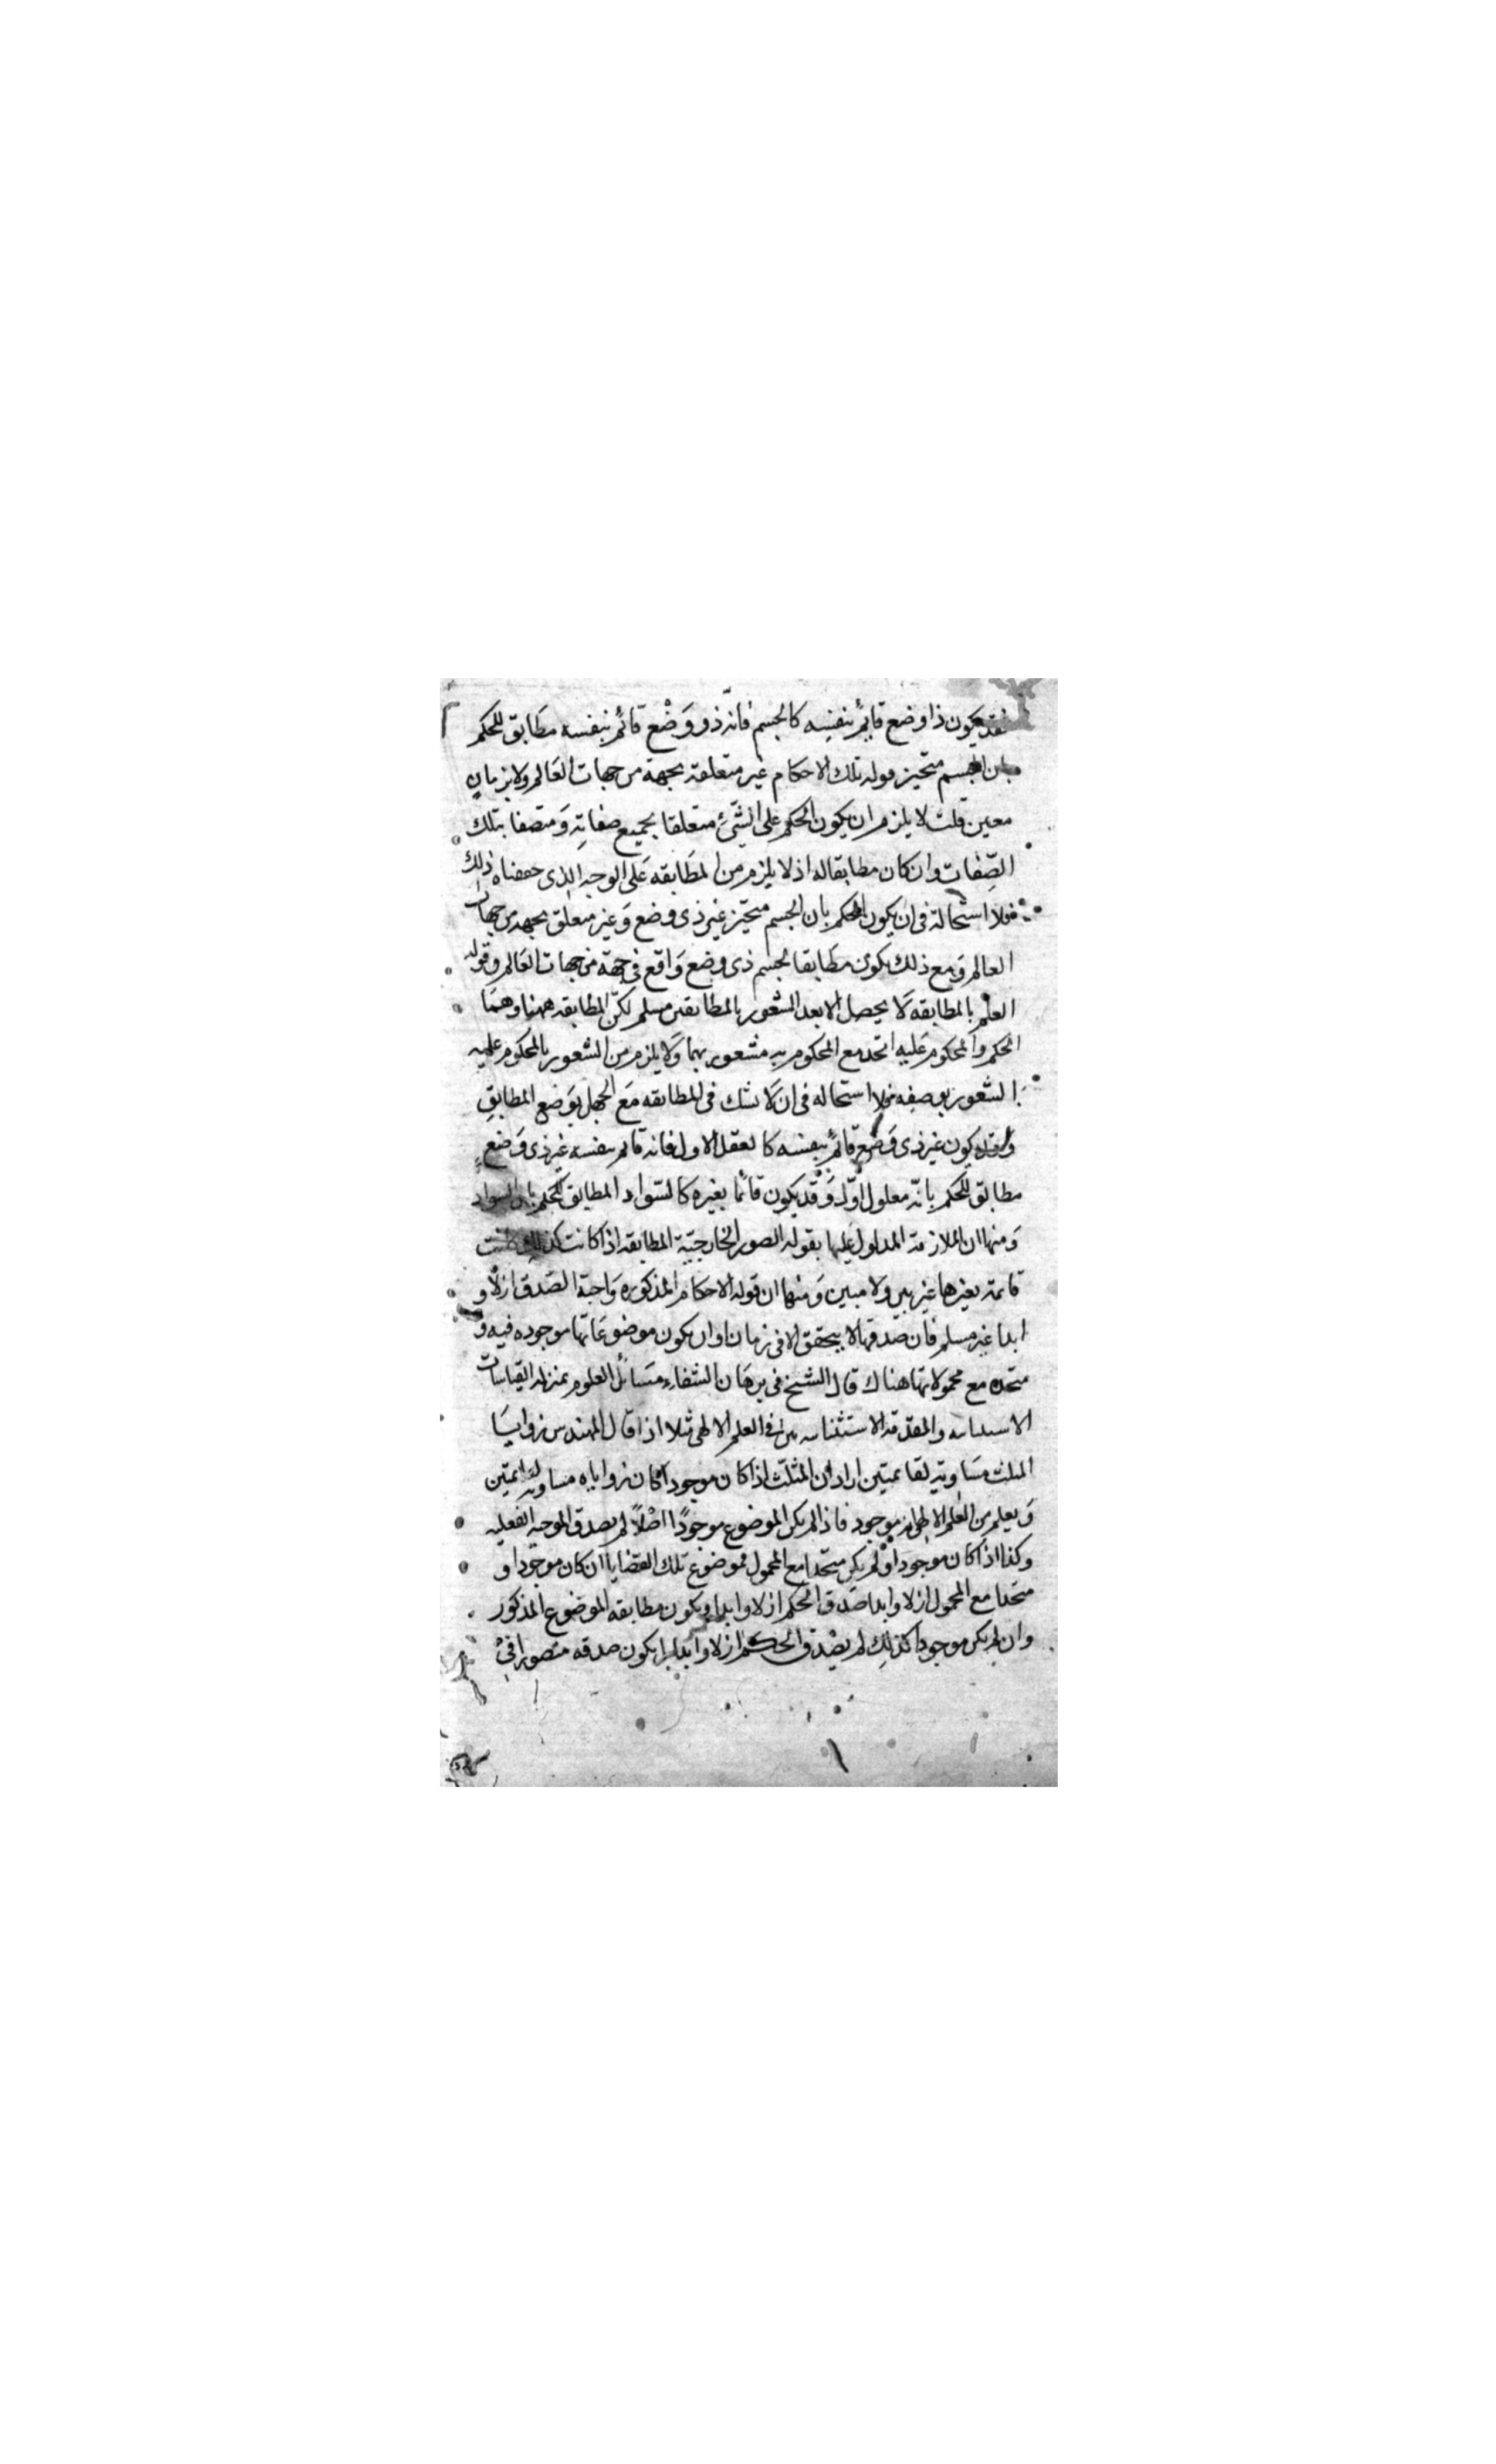 فقد يكون ذا وضع قائم بنفسه كالجسم فانه ذو وَضْع قائم بنفسه مطابق للحكم
بان الجسم متحيز قوله تلك الاحكام غير متعلقة بجهة من جهات العَالم ولا بزمان
معين قلت لا يلزم ان يكون الحكم على الشئ متعلقا بجميع صفاتِهِ وَمتصفا بتلك
الصِّفات وان كان مطابقا له اذ لا يلزم من المطَابقه عَلى الوجه الذى حققناه ذلك
فلا استحالة فى ان يكون الحكم بان الجسم متحيّز غير ذى وضع وَغير متعلق بجهه من جهات
العالم وَمع ذلك يكون مطَابقا لجسم ذى وضع وَاقع فى جهة من جهات العَالم وقوله
العلم بالمطابقه لَا يحصل الا بعد الشعور بالمطابقين مسلم لكنّ المطابقه ههنا وهمَا
الحكم والمحكوم عَليه اتحد مع المحكوم بهِ مشعور بهما وَلا يلزم من الشعور بالمحكوم عليه
الشعور بوصفه فلا استحاله فى ان لَا نشك فى المطابقه مَع الجهل بوَضع المطابقِ
وقد يكون غير ذى وَضع قائم بنفسه كالعقل الاول فانه قائم بنفسه غير ذى وَضعٍ
مطابق للحكم بانّه معلول اوّل وَقد يكون قائما بغيره كالسّواد المطابق للحكم بان السواد
وَمنها ان الملازمة المدلول عليها بقوله الصور الخارجيّة المطابقه اذا كانت كذلك كانت
قائمة بغيرها غير بين ولا مبين وَمنها ان قوله الاحكام المذكوره وَاجبة الصّدق ازلًا و
ابدا غير مسلم فان صدقها لا يتحقق الا فى زمان اوان يكون موضوعَاتها موجوده فيه وَ
متحده مع محمولاتها هناك قال الشيخ فى برهَان الشفاء مسَائل العلوم بمنزله القياسات
والمقدمة الاستثنائيه فى العلم الالهى مثلا اذا قال المهندس زوايَا
المثلث مسَاوية لقائمتين اراد ان المثلّث اذا كان موجودا كان زواياه مساوية لقائمتين
وَيعلم من العلم الالهى انه موجود فاذا لم يكن الموضوع موجودًا اصْلًا لم يصدق الموجبه الفعليه
وكذا اذا كان موجودا وَلم يكن متحدا مع المحمول فموضوع تلك القضايا ان كان موجودا و
متحدا مع المحمول ازلا وابدا صَدق الحكم ازلا وابدا ويكون مطابقه الموضوع المذكور
وان لم يكن موجودا كذلِك لم يصْدق الحكم ازلا وابدا بل يكون صدقه متصورا فىْ